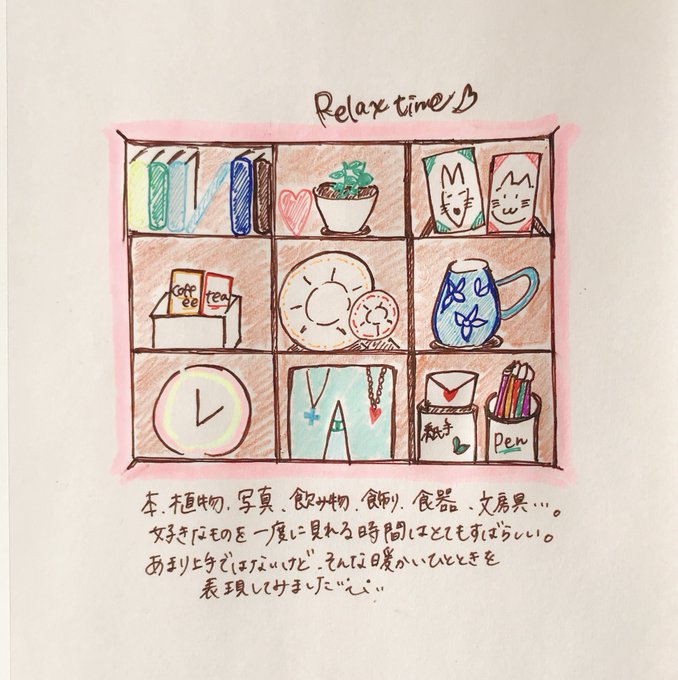 Relax time
coff
ee
tea
紙手
Pen
本、植物、写真、飲み物、飾り、食器、文房具…。
好きなものを一度に見れる時間はとてもすばらしい。
あまり上手ではないけど、そんな暖かいひとときを
表現してみました